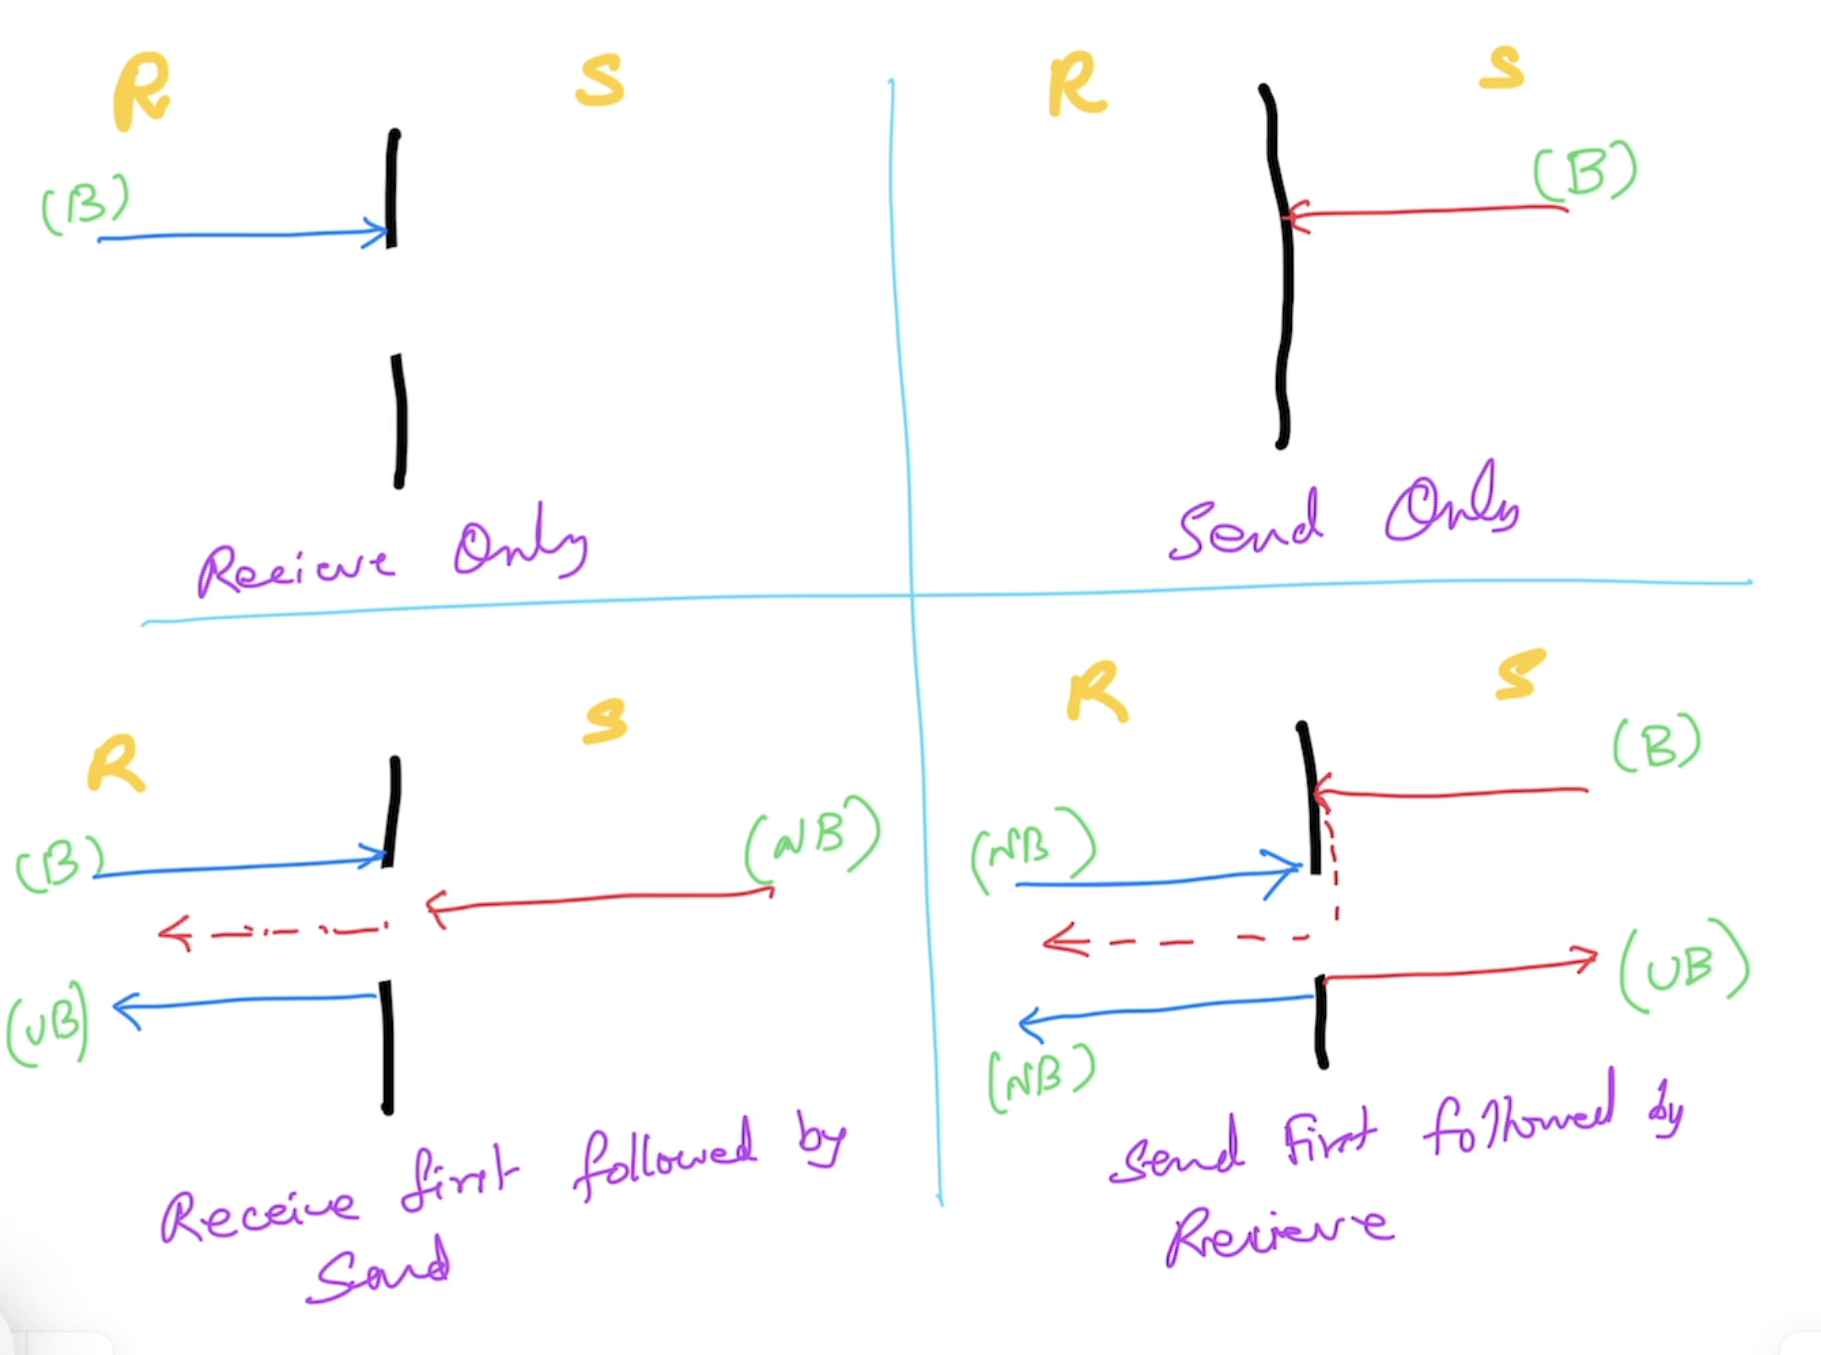 R S
(B)
Recieve Only
R S
(B)
Send Only
R S
(B) (NB)
(UB)
Receive first followed by
Send
R S
(B)
(NB)
(UB)
(NB)
Send First followed by
Recieve